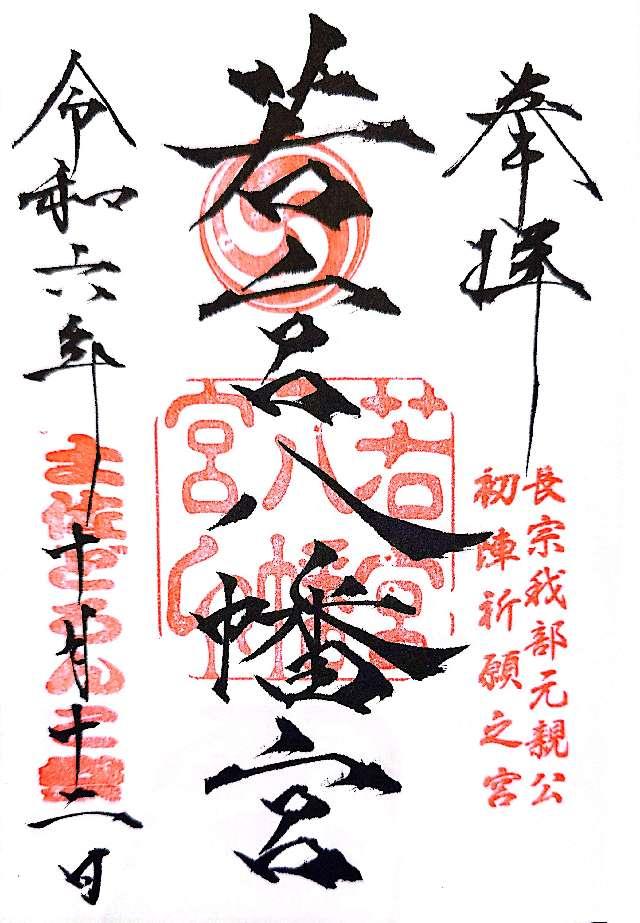 奉拝
長宗我部元親公
初陣祈願之宮
若宮八幡宮
若宮
八幡
宮印
令和六年十月十二日